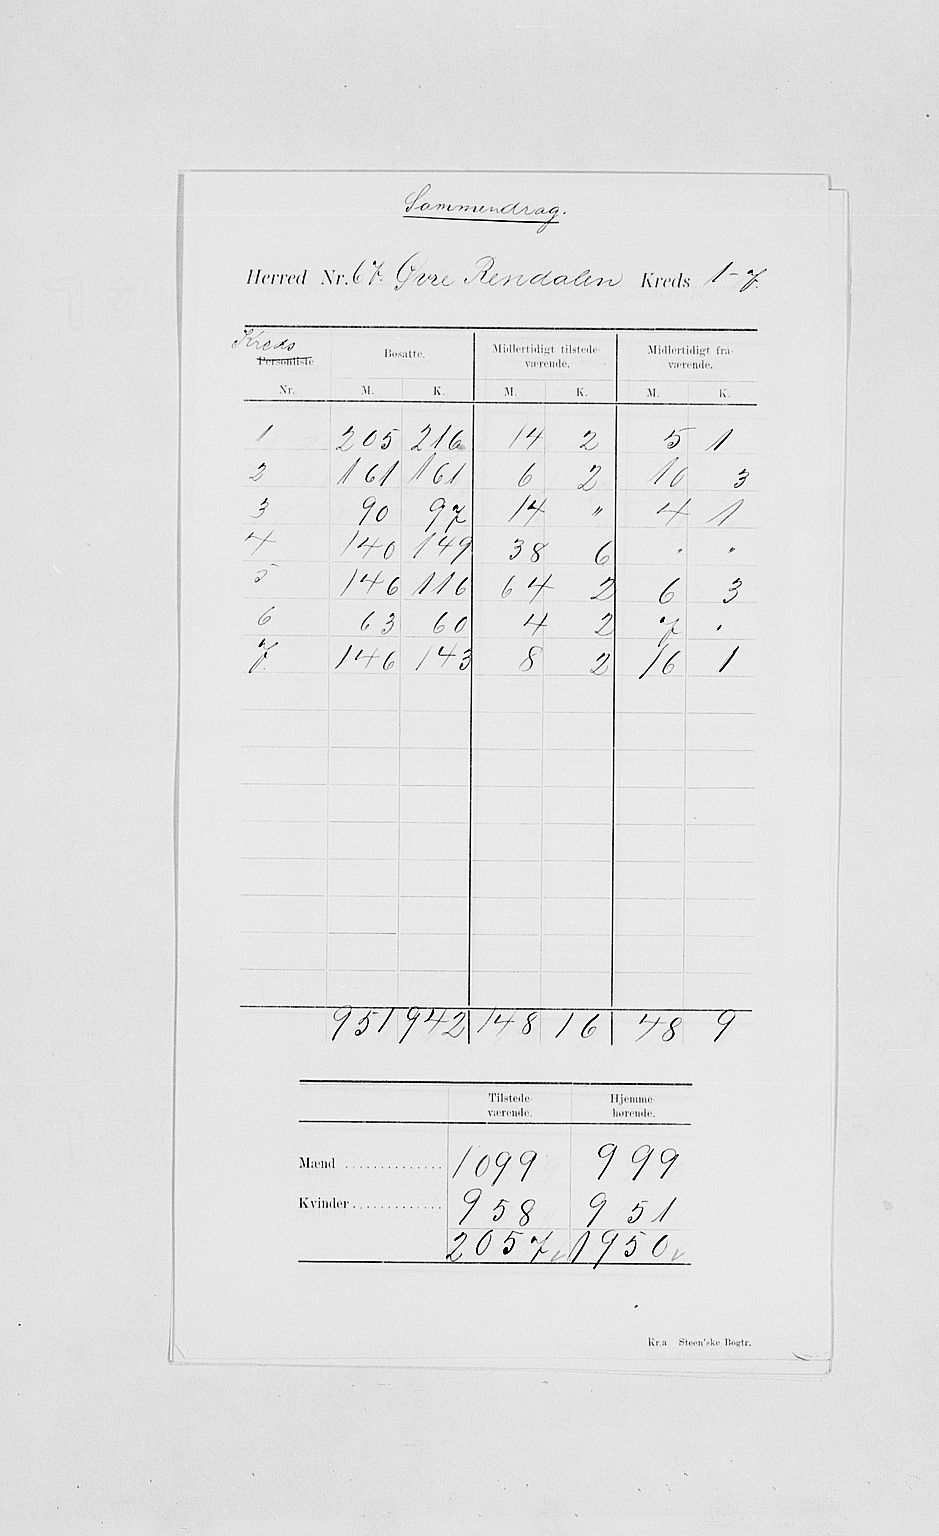 Sammendrag.
Herred Nr. 67. Øvre Rendalen Kreds 1-7.
Kreds
Personliste Bosatte. Midlertidigt tilstede- Midlertidigt fra-
værende. værende.
Nr. M. K. M. K. M. K.
1 205 216 14 2 5 1
2 161 161 6 2 10 3
3 90 97 14 " 4 1
4 140 149 38 6 " "
5 146 116 64 2 6 3
6 63 60 4 2 7 "
7. 146 143 8 2 16 1
951 942 148 16 48 9
Tilstede- Hjemme-
værende. hørende.
Mænd .............. 1099 999
Kvinder ............. 958 951
2057 1950
Kr.a Steen'ske Bogtr.